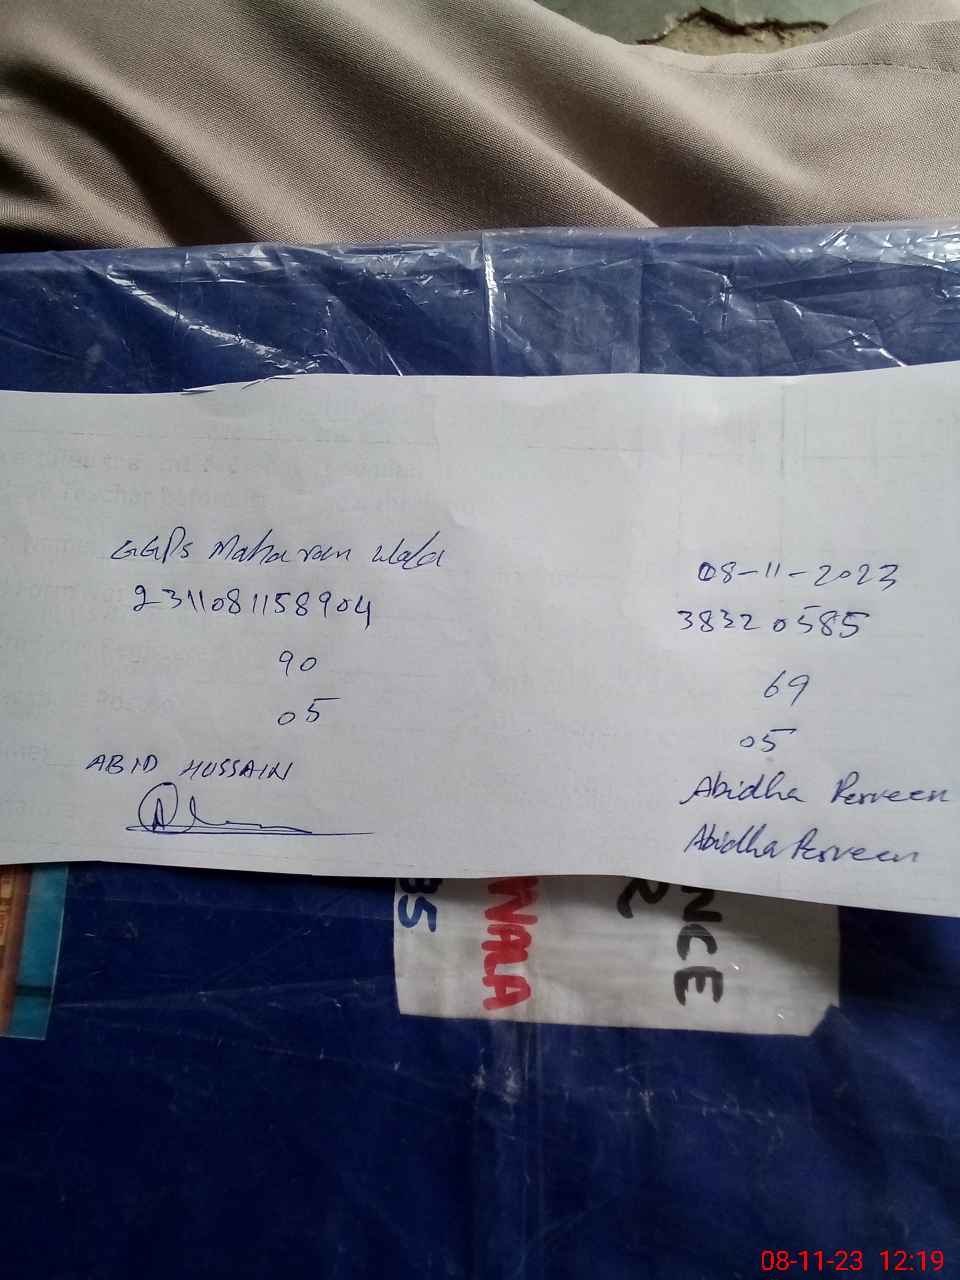 GGPs Maharan Wala
231108115 8904
90
05
ABID HUSSAIN
08-11-2023
38320585
69
05
Abidha Perveen
Abidha Perveen
BS
WALA
2
NCE
08-11-23 12:19